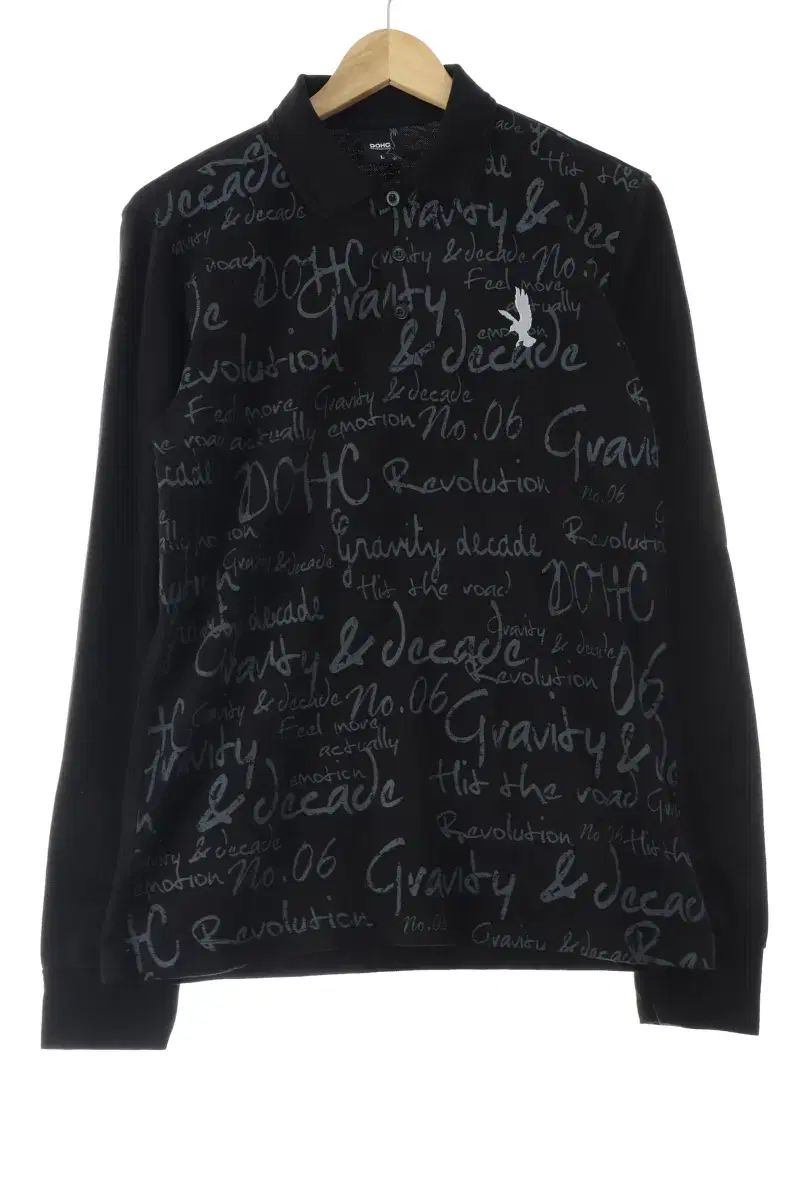 DOHC
L
Hit the
decade
Gravity & dec
Gravity & decade
Gravity & decade No.
road
DOHC
Feel more
actually
Gravity
emotion
& decade
evolution
Gravity & decade
Feel more
the road actually emotion No.06
Gravit
cade
DOHC Revolution
No.06
Gravity decade
Revolutio
Gravity & decade
Hit the road
DOHC
decade
Gravity & decade
Gravity & decade
Revolution
06
Gravity & decade No.06
Feel more
actually
Gravity &
Gravity
emotion
Hit the road
& decade
Revolution
No.06
Hit th
& decade
emotion No.06
Gravity & decad
HC Revolution
No.06
Gravity & decade